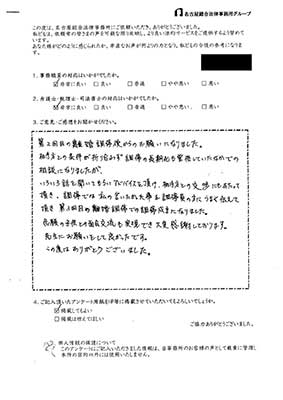 名古屋総合法律事務所グループ
この度は、名古屋総合法律事務所にご依頼いただき、ありがとうございました。
私どもは、依頼者の皆さまの声を可能な限り反映し、より良い法的サービスをご提供するよう努めています。
あなた様がどのように感じられたか、率直なお声が何よりの力となり、私どもの今後の参考になります。
1．事務職員の対応はいかがでしたか。
☑非常に良い □良い □普通 □やや悪い □悪い
2．弁護士・税理士・司法書士の対応はいかがでしたか。
☑非常に良い □良い □普通 □やや悪い □悪い
3．ご意見・ご感想をお聞かせください。
第2回目の離婚調停後からのお願いになりました。
相手方との条件が折り合わず調停の長期化も覚悟していたなかでの
相談になりましたが、
いろいろ話を聞いてもらいアドバイスを頂け、相手方との交渉にもあたって
頂き、調停では私の言いたい事を調停員の方にうまく伝えて
頂き第3回目の離婚調停での調停成立になりました。
念願の子供との面会交流も実現でき大変感謝しております。
先生にお願いをして良かったです。
この度はありがとうございました。
4．ご記入頂いたアンケート用紙を評等に掲載させていただいてもよろしいでしょうか。
☑掲載してもよい
□掲載は控えてほしい
ご協力ありがとうございました。
個人情報の保護について
このアンケートにご記入いただきました情報は、当事務所のお客様の声として厳重に管理し
本件の目的以外には使用いたしません。